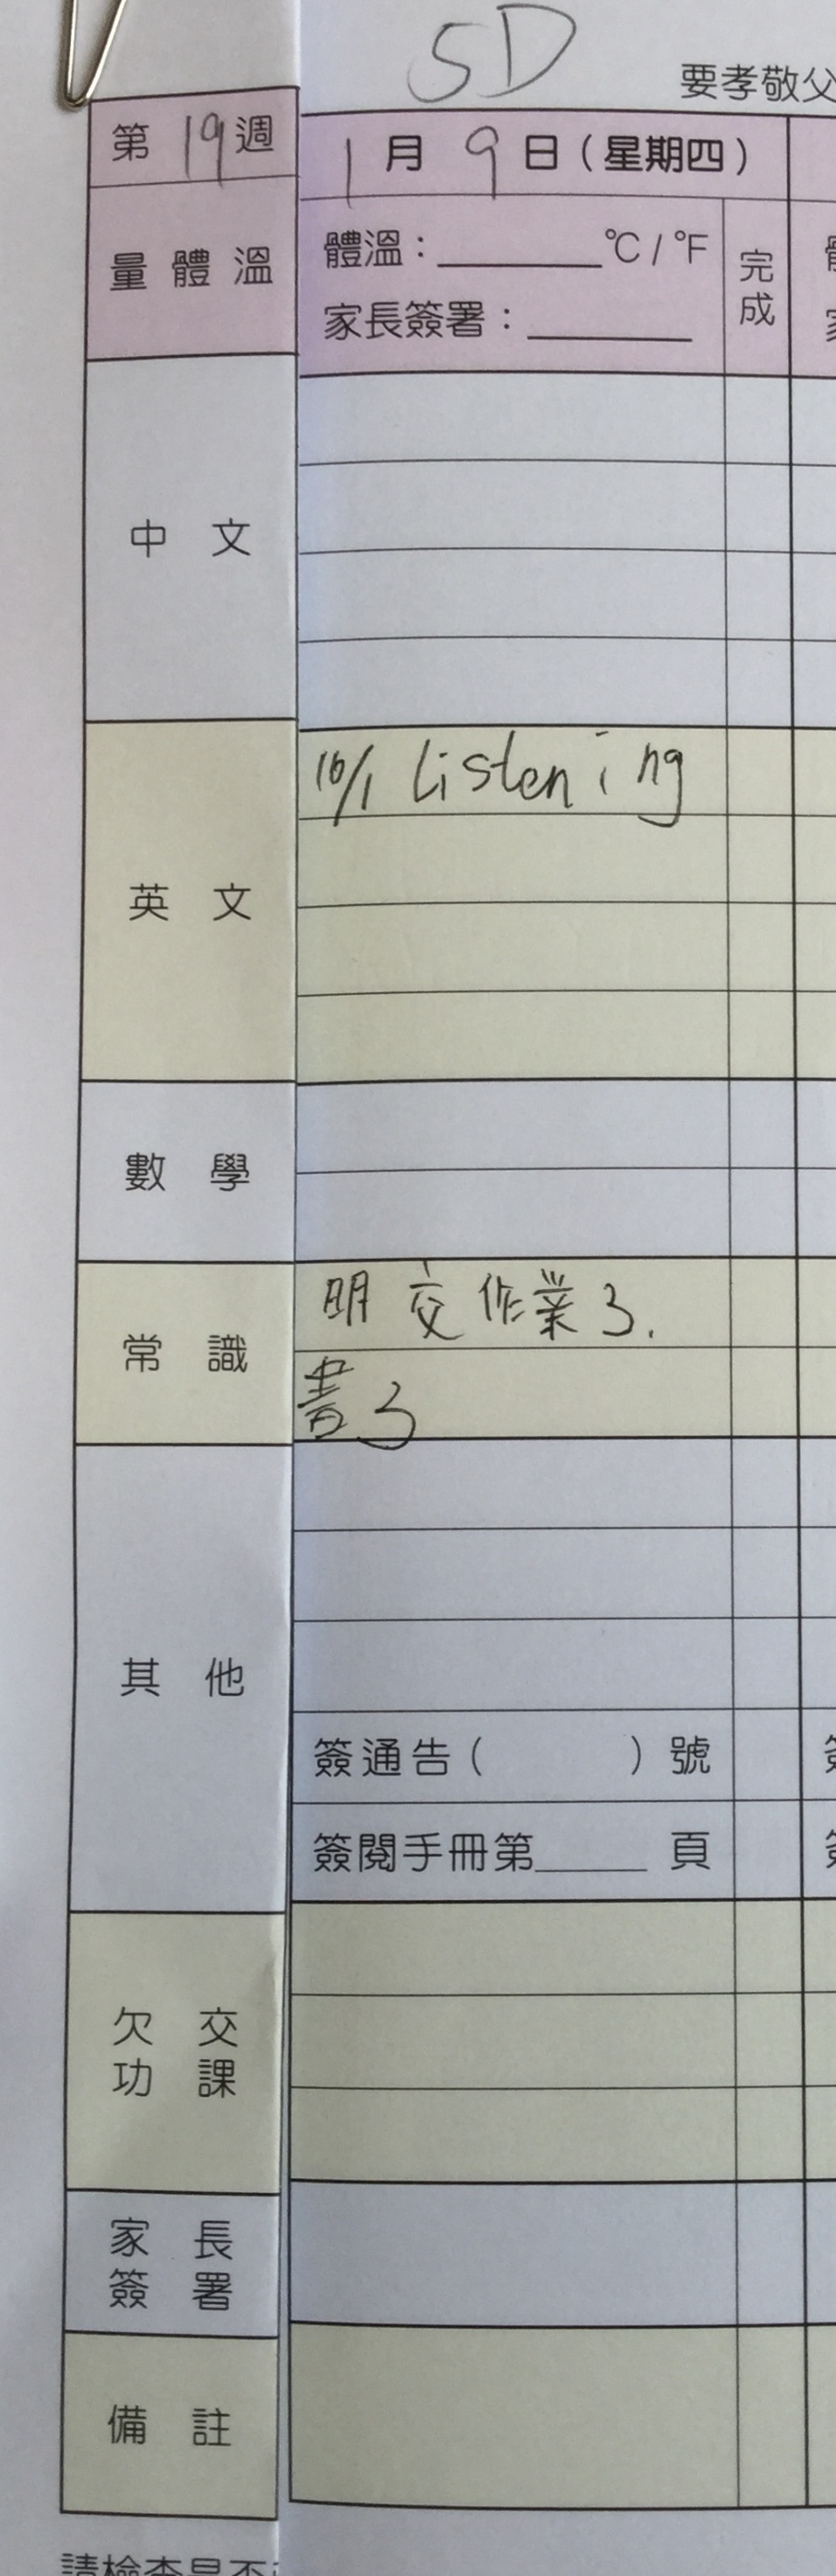 5D
要孝敬父
第 19 週
1 月 9 日（星期四）
量體溫
體溫：______℃/℉
家長簽署：______
完成
中文
英文
16/1 Listening
數學
常識
明交作業3.
書3
其他
簽通告（ ）號
簽閱手冊第_____頁
欠交
功課
家長
簽署
備註